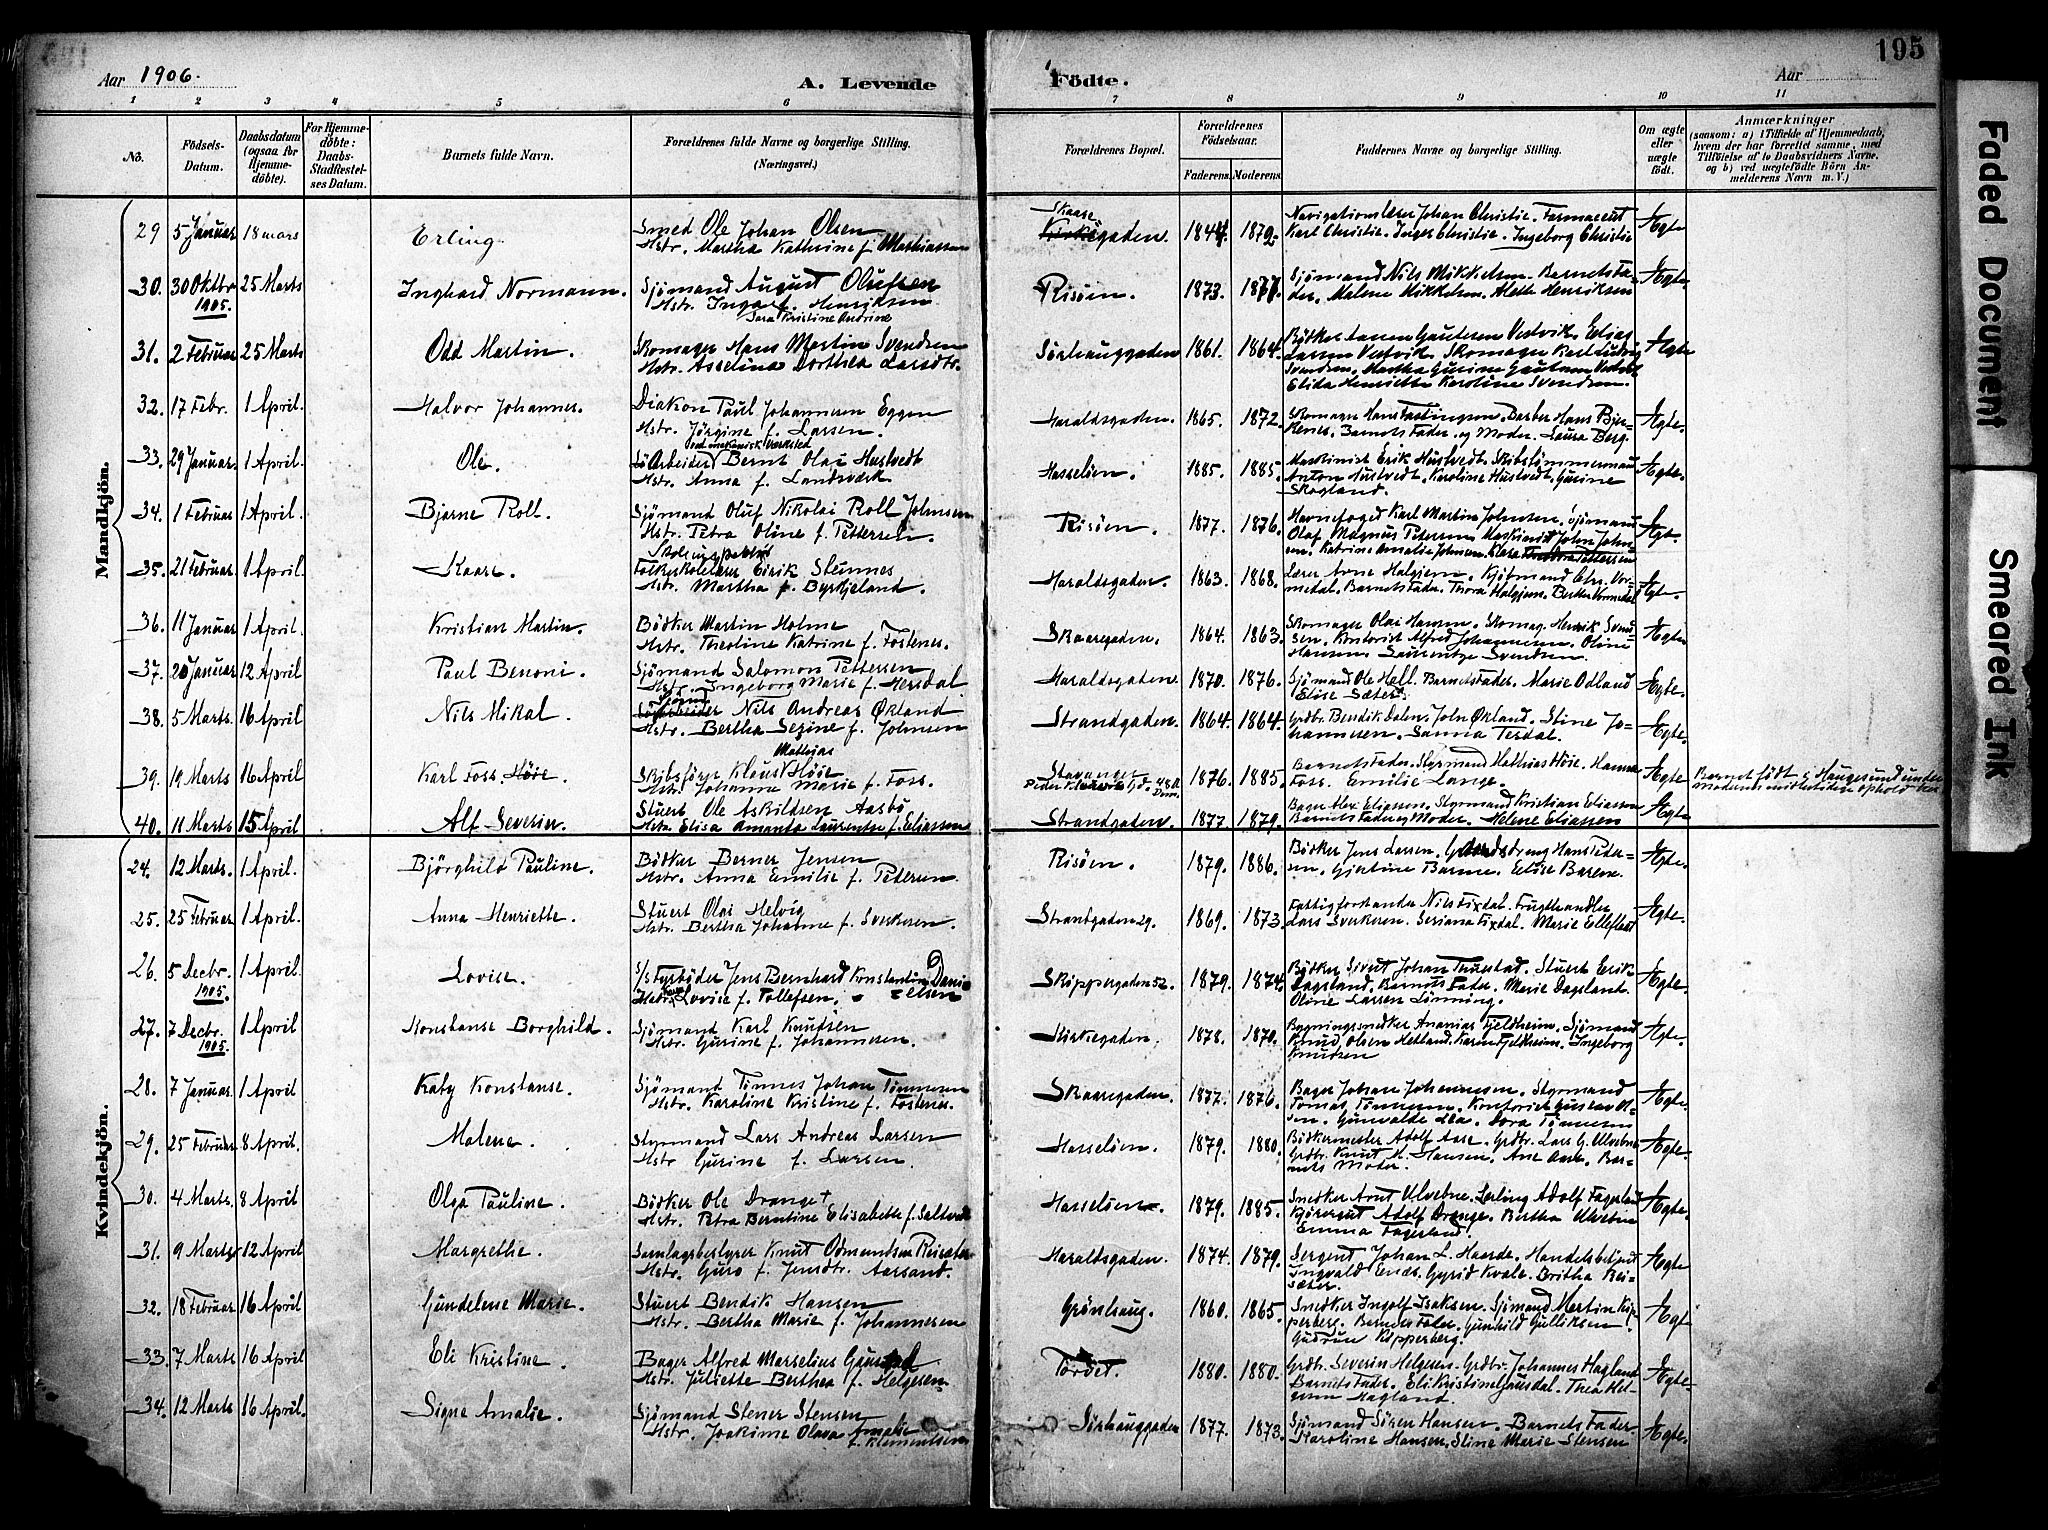 195
Aar 1906.
A. Levende Födte.
Aar
1 2 3 4 5 6 7 8 9 10 11
No.
Födsels-Datum.
Daabsdatum (ogsaa for Hjemmedöbte).
For Hjemmedöbte: Daabs-Stadfæstelses Datum.
Barnets fulde Navn.
Forældrenes fulde Navne og borgerlige Stilling. (Næringsvei.)
Forældrenes Bopæl.
Forældrenes Födselsaar.
Faderens. Moderens.
Faddernes Navne og borgerlige Stilling.
Om ægte eller uægte födt.
Anmærkninger
(saasom: a) i Tilfælde af Hjemmedaab, hvem der har forrettet samme, med Tilföielse af to Daabsvidners Navne, og b) ved uægtefödte Börn Anmelderens Navn m. V.)
Mandkjön.
29 5 Januar 18 mars Erling. Smed Ole Johan Olsen
Hstr. Martha Kathrine f. Mathiassen
Skaaregaden. 1844. 1879. Navigationslærer Johan Christie. Farmaceut
Karl Christie. Inger Christie. Ingeborg Christie Ægte
30. 30 Oktbr 1905. 25 Marts Inghard Normann. Sjømand August Olufsen
Hstr. Inga f. Henriksen
Sara Kristine Andrine
Risøen. 1873. 1877. Sjømand Nils Mikkelsen. Barnets Fader. Malene Mikkelsen. Alette Henriksen Ægte
31. 2 Februar 25 Marts Odd Martin. Skomager Hans Martin Svendsen
Hstr. Asseline Dorthea Larsdtr.
Sørhauggaden 1861. 1864. Bødker Lassen Gautesen Vestvik. Elias
Larsen Vestvik. Skomager Karl Ludvig
Svendsen. Martha Gurine Gautesen Vestvik
Elida Henriette Karoline Svendsen. Ægte
32. 17 Febr. 1 April. Halvor Johannes. Diakon Paul Johannesen Eggen
Hstr. Jørgine f. Larsen.
Haraldsgaden. 1865. 1872. Skomager Hans Fastingsen. Barber Hans Bjerkenes. Barnets Fader og Moder. Laura Berg. Ægte.
33. 29 Januar. 1 April. Ole. ved mekanisk Værksted
Arbeider Bernt Olai Hustvedt
Hstr. Anna f. Landsværk
Hasseløen. 1885. 1885. Maskinist Erik Hustvedt. Skibstømmermand
Anton Hustvedt. Karoline Hustvedt. Gurine
Skogland. Ægte.
34. 1 Februar 1 April. Bjarne Roll. Sjømand Oluf Nikolai Roll Johnsen
Hstr. Petra Oline f. Pettersen.
Risøen. 1877. 1876. Havnefoged Karl Martin Johnsen. Sjømand
Olaf Magnus Petersen Maskinist John Johnsen. Katrine Amalie Johnsen. Ægte.
35. 21 Februar. 1 April Kaare. Skoleinspektør
Folkeskolelærer Eirik Stennes
Hstr. Martha f. Byrkjeland.
Haraldsgaden. 1863. 1868. Lærer Arne Halgjem. Kjøbmand Chr. Vormedal. Barnets Fader. Thora Halgjem. Berthe Vormedal Ægte.
36. 11 Januar 1 April. Kristian Martin. Bødker Martin Holme
Hstr. Theoline Katrine f. Fostenes.
Skaaregaden. 1864. 1863. Skomager Olai Hansen. Skomag. Henrik Svendsen. Kontorist Alfred Johannesen. Oline
Hansen Laurentze Svendsen. Ægte
37. 20 Januar 12 April Paul Benoni. Sjømand Salomon Pettersen
Hstr. Ingeborg Marie f. Hersdal
Haraldsgaden. 1870. 1876. Sjømand Ole Hell. Barnets Fader. Marie Odland
Elise Sæter. Ægte.
38. 5 Marts. 16 April Nils Mikal. Nils Andreas Økland
Hstr. Bertha Sezine f. Johnsen
Strandgaden. 1864. 1864. Grdbr. Bendik Dalen. John Økland. Stine Johannesen. Sanna Tesdal. Ægte.
39. 19 Marts 16 April Karl Foss Høie. Mathias
Skibsfører Klaus Høie
Hstr. Johanna Marie f. Foss.
Stavanger 1876. 1885. Barnets Fader. Styrmand Mathias Høie. Hanna
Foss. Emilie Lange. Ægte Barnet født i Haugesund under
moderens midlertidige ophold her
40. 11 Marts 15 April Alf Severin. Stuert Ole Askildsen Aasbø
Hstr. Elisa Amanda Laurentse f. Eliassen
Strandgaden. 1877. 1879. Bager Alex Eliassen. Styrmand Kristian Eliassen
Barnets Fader og Moder. Helene Eliassen Ægte
Kvindekjön.
24. 12 Marts. 1 April. Bjørghild Pauline. Bødker Berner Jensen
Hstr. Anna Emilie f. Petersen.
Risøen. 1879. 1886. Bødker Jens Larsen. Hans Pedersen. Gjertine Barene. Elise Barene. Ægte.
25. 25 Februar 1 April. Anna Henriette. Stuert Olai Helvig
Hstr. Bertha Johanne f. Sverksen.
Strandgaden 29. 1869. 1873. Fattigforstander Nils Fixdal. Frugthandler
Lars Sverksen. Seriana Fixdal. Marie Elleflaat Ægte.
26. 5 Decbr. 1905. 1 April Lovise. Fyrbøder Jens Bernhard Konstantin Danielsen
Hstr. Lovise f. Tollefsen.
Skippergaden 52. 1879. 1874. Bødker Sivert Johan Thuestad. Stuert Erik
Dagsland. Barnets Fader. Marie Dagsland.
Oline Larsen Lønning. Ægte.
27. 7 Decbr. 1905. 1 April Konstanse Borghild. Sjømand Karl Knudsen
Hstr. Gurine f. Johannesen.
Kirkegaden. 1878. 1870. Bygningssnedker Ananias Fjeldheim. Sjømand
Knud Olsen Hetland. Karen Fjeldheim. Ingeborg
Knudsen Ægte.
28. 7 Januar. 1 April Katy Konstanse. Sjømand Tønnes Johan Tønnesen
Hstr. Karoline Kristine f. Fostenes.
Skaaregaden. 1877. 1876. Bager Johan Johannesen. Styrmand
Tomas Tønnesen. Kontorist Gustav Olsen. Gunvalde Lea. Dora Tønnesen Ægte.
29. 25 Februar 8 April. Malene. Styrmand Lars Andreas Larsen
Hstr Gurine f. Larsen.
Hasseløen. 1879. 1880. Bødkermester Adolf Aase. Grdbr. Lars G. Ulvebne
Grdbr. Knut H. Hansen. Ane Aase. Barnets Moder. Ægte.
30. 4 Marts. 8 April Olga Pauline. Bødker Ole Drange
Hstr. Petra Berntine Elisabethe f. Saltvedt
Hasseløen. 1879. 1885. Snedker Arnt Ulvebne. Lærling Adolf Fagerland
Kjøregut Adolf Drange. Bertha Ulvebne
Emma Fagerland. Ægte.
31. 9 Marts 12 April Margrethe. Samlagsbestyrer Knut Odmundsen Reisæter
Hstr. Guro f. Jensdtr. Aarsand.
Haraldsgaden. 1874. 1879. Sergent Johan L. Haarde. Handelsbetjent
Ingvald Enes. Gyrid Kvale. Britha Reisæter. Ægte
32. 18 Februar 16 April Gundelene Marie. Stuert Bendik Hansen
Hstr. Bertha Marie f. Johannesen
Grønhaug. 1860. 1865. Snedker Ingolf Isaksen. Sjømand Martin Kipperberg. Barnets Fader. Gunhild Gulliksen.
Gudrun Kipperberg. Ægt
33. 7 Marts 16 April Eli Kristine. Bager Alfred Marselius
Hstr. Juliette Berthea f. Helgesen
1880. 1880. Grdbr. Severin Helgesen. Grdbr. Johannes Hagland
Barnets Fader. Eli Kristine Gausdal. Thea Helgesen Hagland Ægte
34. 12 Marts 16 April. Signe Amalie. Sjømand Stener Stensen
Hstr. Joakime Olava Amalie
f. Klementsen
Sørhauggaden 1877. 1873. Sjømand Søren Hansen. Barnets Fader
Karoline Hansen. Stine Marie Stensen Ægte.
Faded Document
Smeared Ink